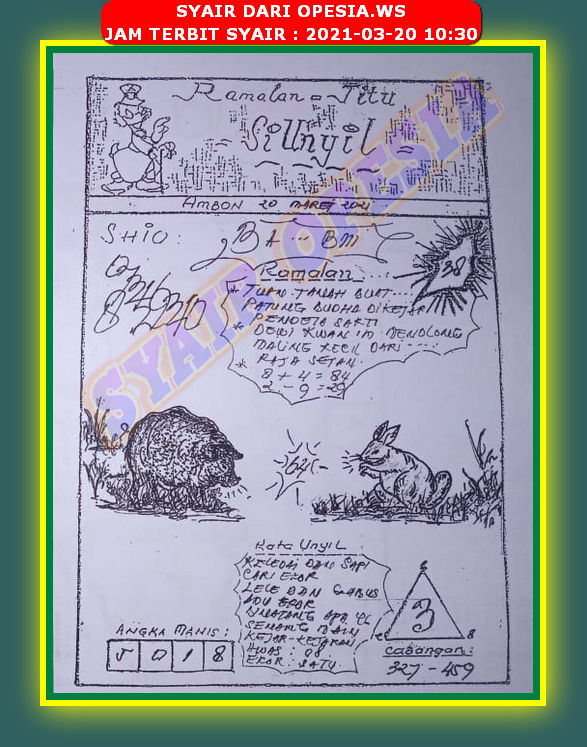 SYAIR DARI OPESIA.WS
JAM TERBIT SYAIR : 2021-03-20 10:30
Ramalan = Jitu
Si Unyil
AMBON 20 MARET 2021
SHIO:
BA ... BM
38
Ramalan....
* TUAN TANAH BUAT...
PATUNG BUDHA DIKEJAR
PENDETA SAKTI
* DEWI KWAN IM MENOLONG
MALING KECIL DARI ----:
* RAJA SETAN.
8 + 4 = 84
2 - 9 = 29
SYAIR OPESIA
64
Kata Unyil
KELEDAI DAN SAPI
CARI EKOR
LELE DAN GABUS
ADU EKOR
BINATANG APA YG
SENANG MAIN
KEJAR-KEJARAN
AWAS : 08
EKOR : SATU.
ANGKA MANIS :
5 0 1 8
3
8
Cadangan:
327 - 459